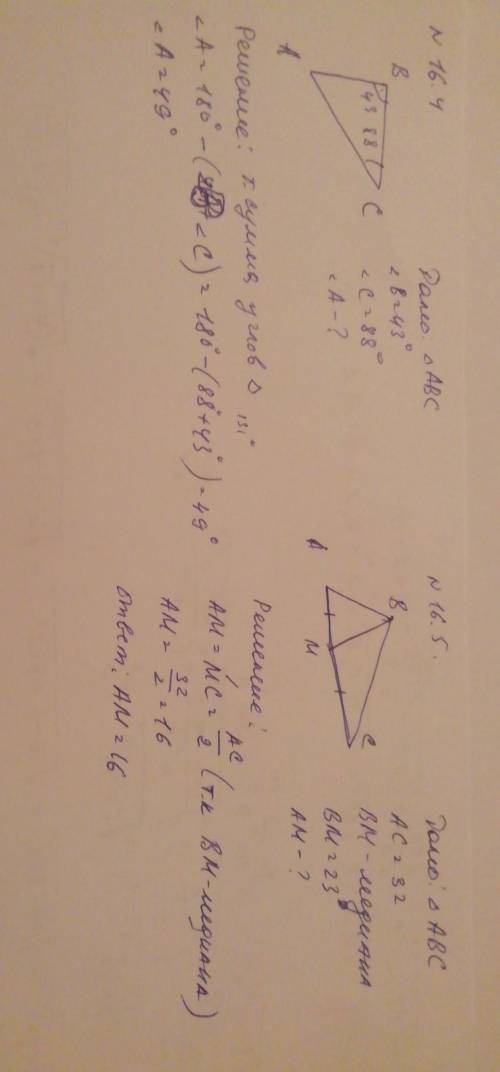 N 16.4
B
43 88
C
A
Дано: △ ABC
<B=43°
<C=88°
<A-?
Решение: т. сумма углов △
131°
<A=180°-( <C)=180°-(88°+43°)=49°
<A=49°
N 16.5.
B
A
M
C
Дано: △ ABC
AC=32
BM-медиана
BM=23
AM-?
Решение:
AM=MC=AC/2 (т.к BM-медиана)
AM=32/2=16
Ответ: AM=16